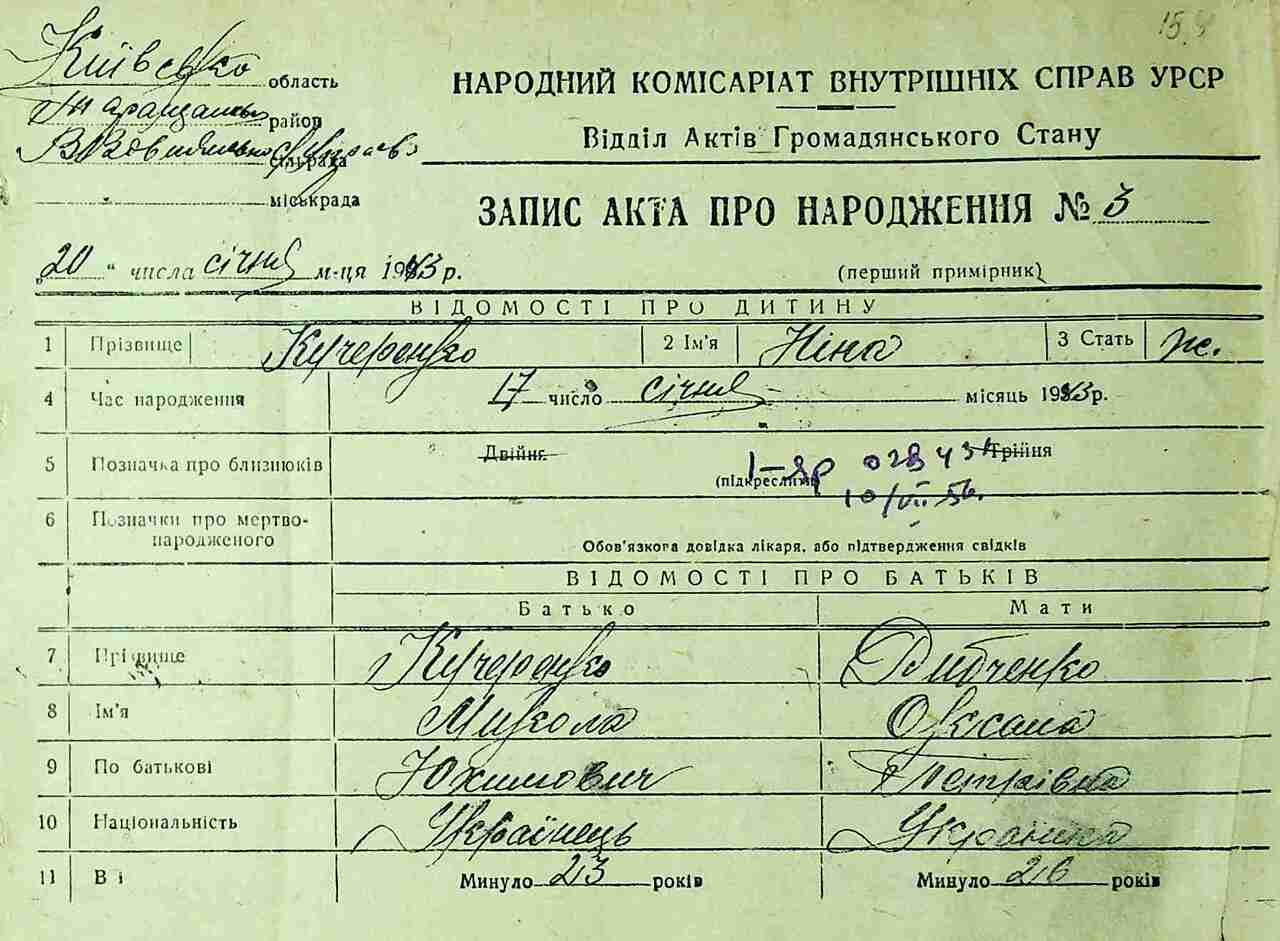 15.
Київсько область
НАРОДНИЙ КОМІСАРІАТ ВНУТРІШНІХ СПРАВ УРСР
район
Відділ Актів Громадянського Стану
сільрада
міськрада
ЗАПИС АКТА ПРО НАРОДЖЕННЯ № 3
„20 “ числа січня м-ця 1943 р.
(перший примірник)
ВІДОМОСТІ ПРО ДИТИНУ
1 Прізвище Кучеренко 2 Ім'я Ніна 3 Стать ж.
4 Час народження 17 число січня місяць 1943 р.
5 Позначка про близнюків Двійня Трійня
(підкреслить)
10/VII 56.
6 Позначки про мертво-
народженого
Обов'язкова довідка лікаря, або підтвердження свідків
ВІДОМОСТІ ПРО БАТЬКІВ
Батько Мати
7 Прізвище Кучеренко Дибченко
8 Ім'я Микола Оксана
9 По батькові Юхимович Петрівна
10 Національність Українець Українка
11 В і Минуло 23 років Минуло 26 років